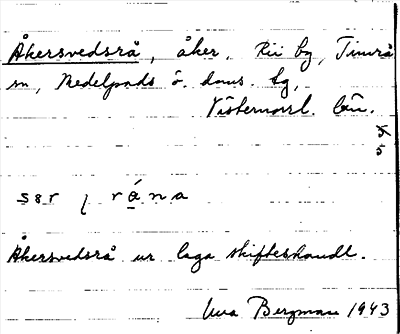 Åkersvedsrå, åker, Rii by, Timrå
sn, Medelpads ö. doms. tg,
Västernorrl. län.
5
sər ʅ rána
Åkersvedsrå ur laga skifteshandl.
Bergman 1943